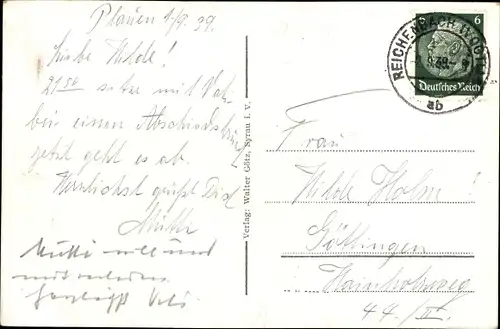 Plauen 1/9. 39.
Liebe Hilde!
21 50 sitze mit Vat.
bei einem Abschiedstrunk
jetzt geht es ab.
Herzlichst grüßt Dich
Mutti
Mutti will und
Verlag: Walter Götz, Syrau i. V.
REICHENBACH (VOGTL)
ab
6
Deutsches Reich
Frau
Hilde Holm
Göttingen
Hainholzweg
44. / II.